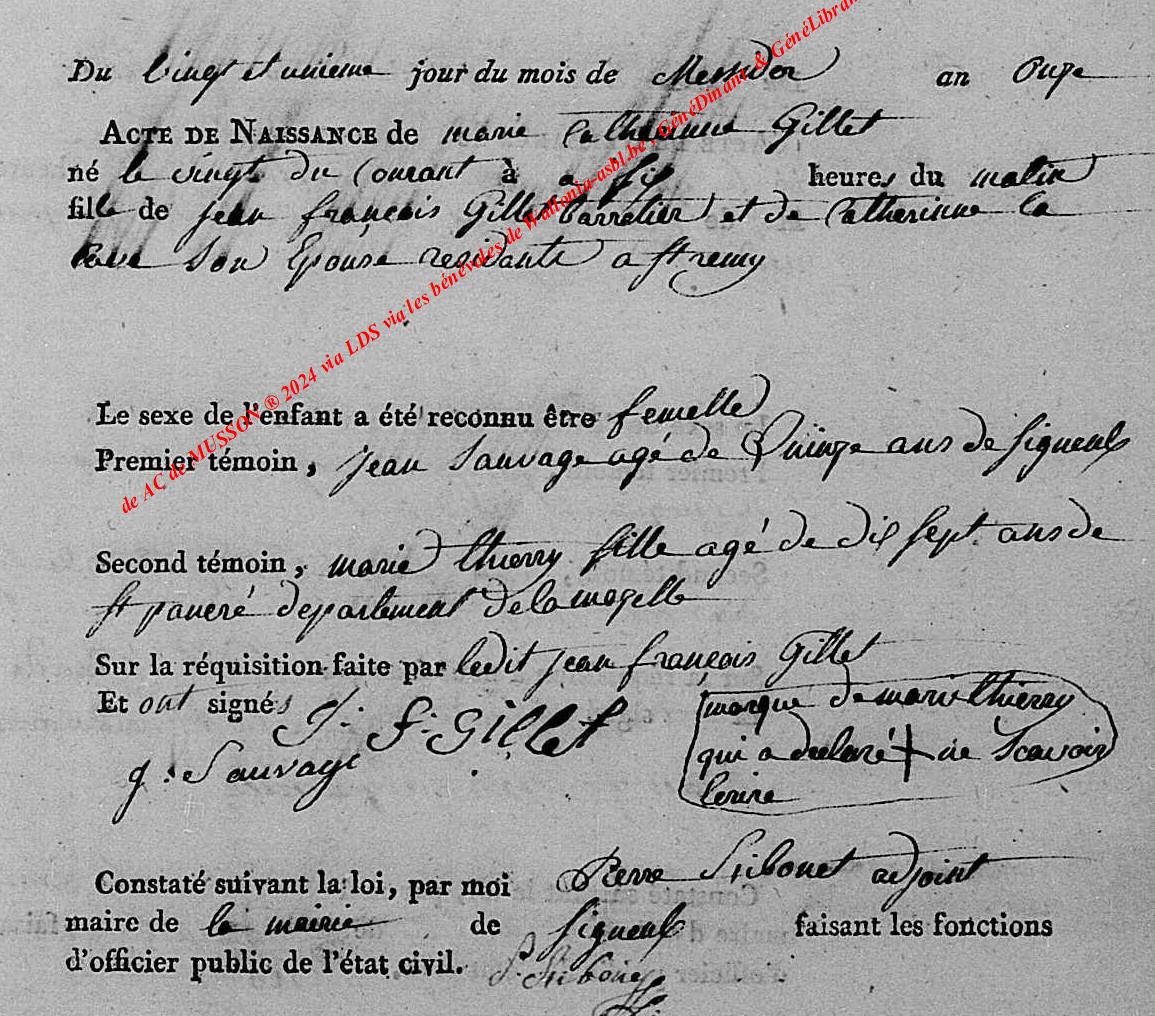 Du vingt et unieme jour du mois de Messidor an Onze
ACTE DE NAISSANCE de marie Catherinne Gillet
né le vingt du Courant à a six heures du matin
fille de jean françois Gillet et de Catherinne la
son Epouse residante a st remy
Le sexe de l'enfant a été reconnu être femelle
Premier témoin, jean Sauvage agé de Quinze ans de signeulx
Second témoin, marie thierry fille agé de dix sept ans de
st pancré departement de la mozelle
Sur la réquisition faite par ledit jean françois Gillet
Et ont signés J: F: Gillet
marque de marie thierry
qui a declaré + ne Scavoir
Ecrire
j: Sauvage
Constaté suivant la loi, par moi Pierre adjoint
maire de la mairie de signeulx faisant les fonctions
d'officier public de l'état civil.
de AC de MUSSON ® 2024 via LDS via les bénévoles de Wallonia-asbl.be, GénéDinant & GénéLibram